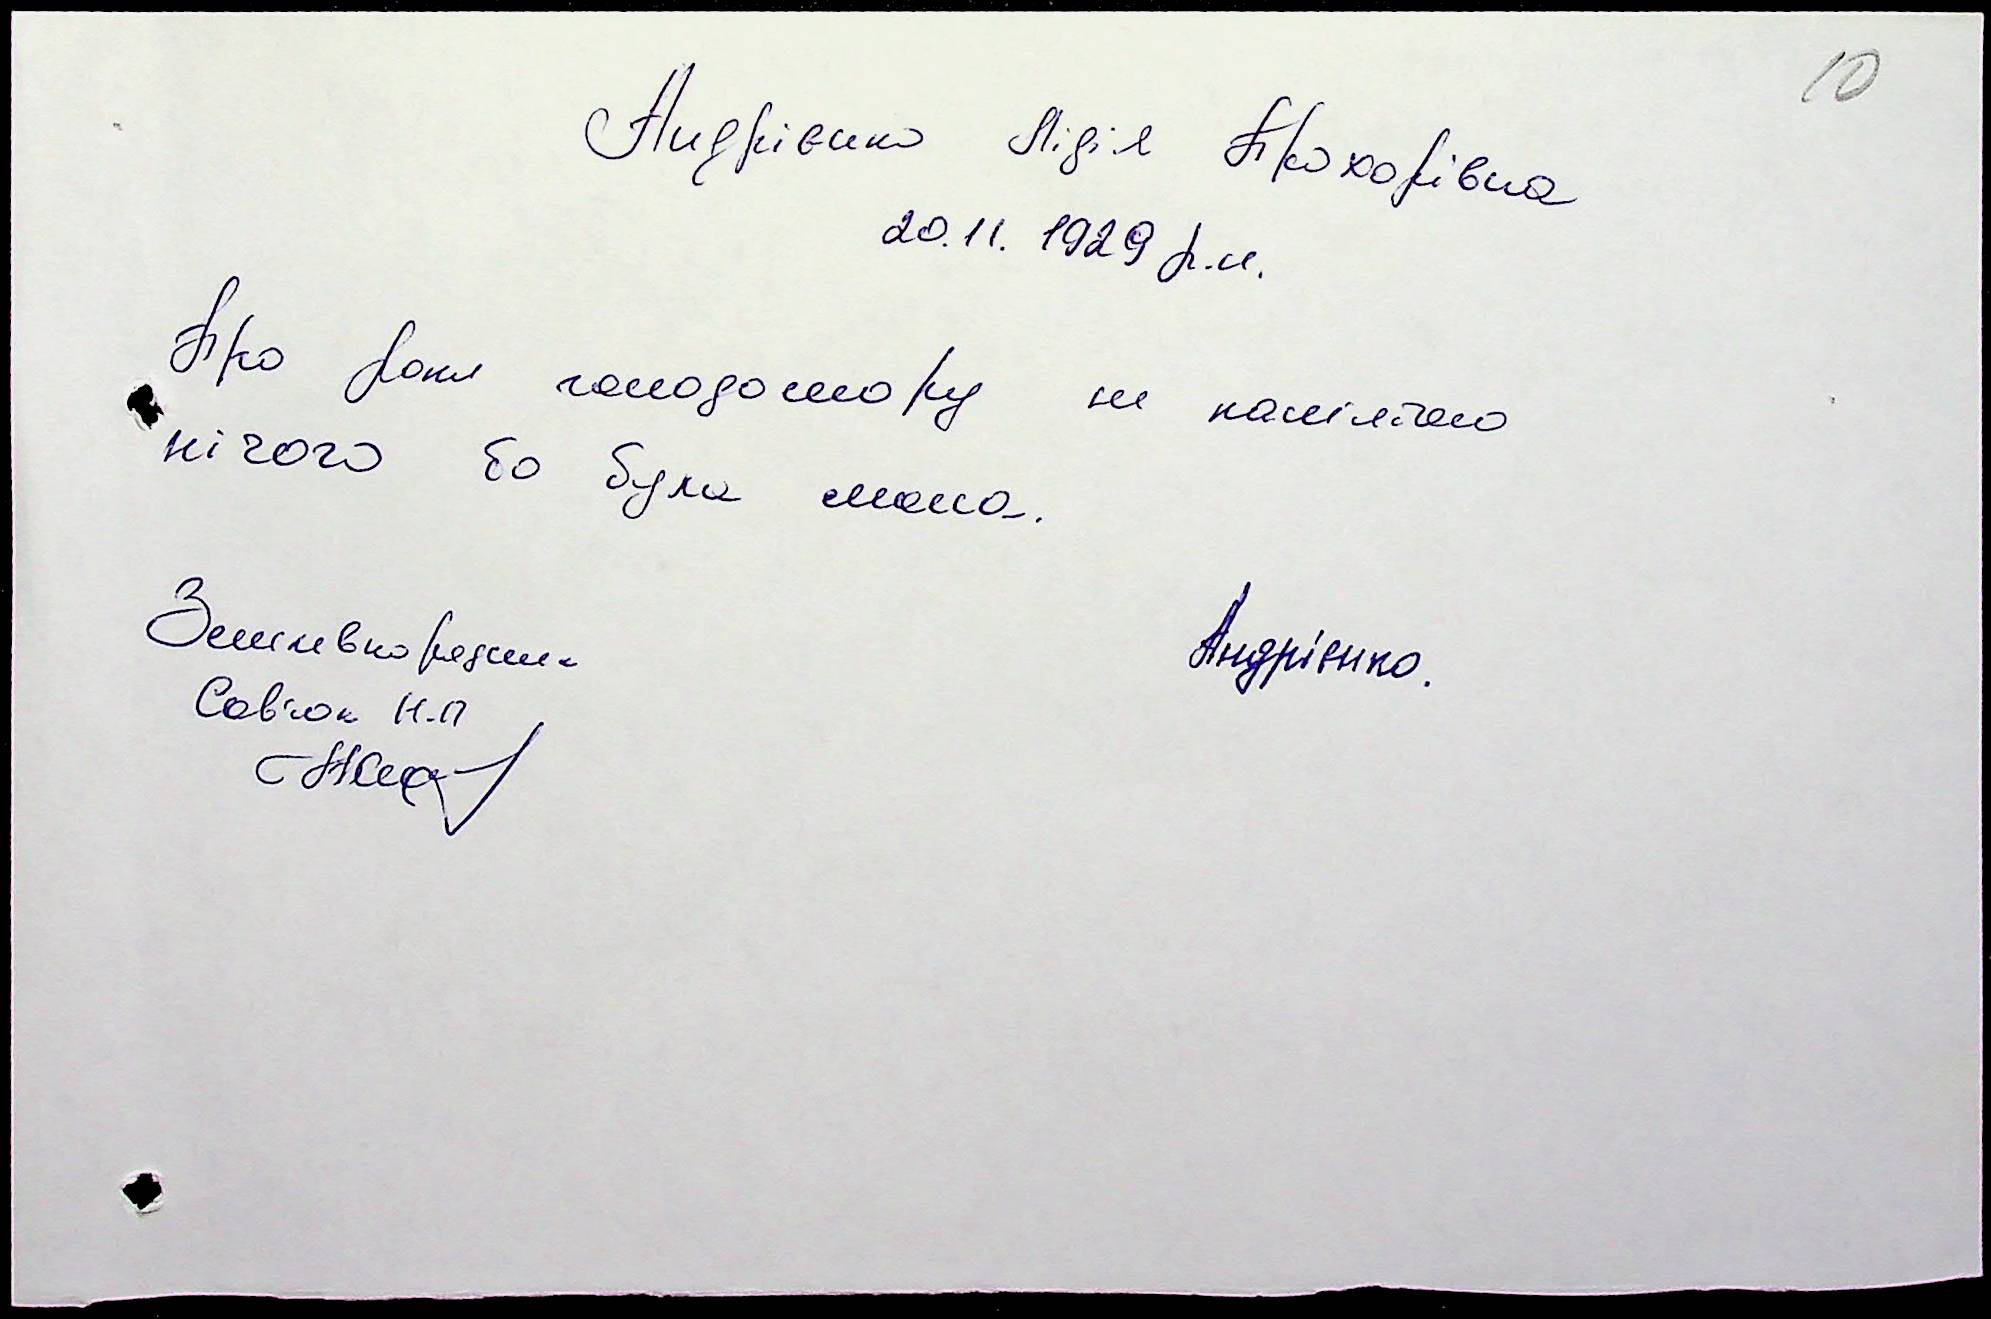 10
Андрієнко Лідія Прохорівна
20.11.1929 р.н.
Про роки голодомору не памʼятаю
нічого бо була мала.
Землевпорядник
Савʼюк Н.П
Андрієнко.